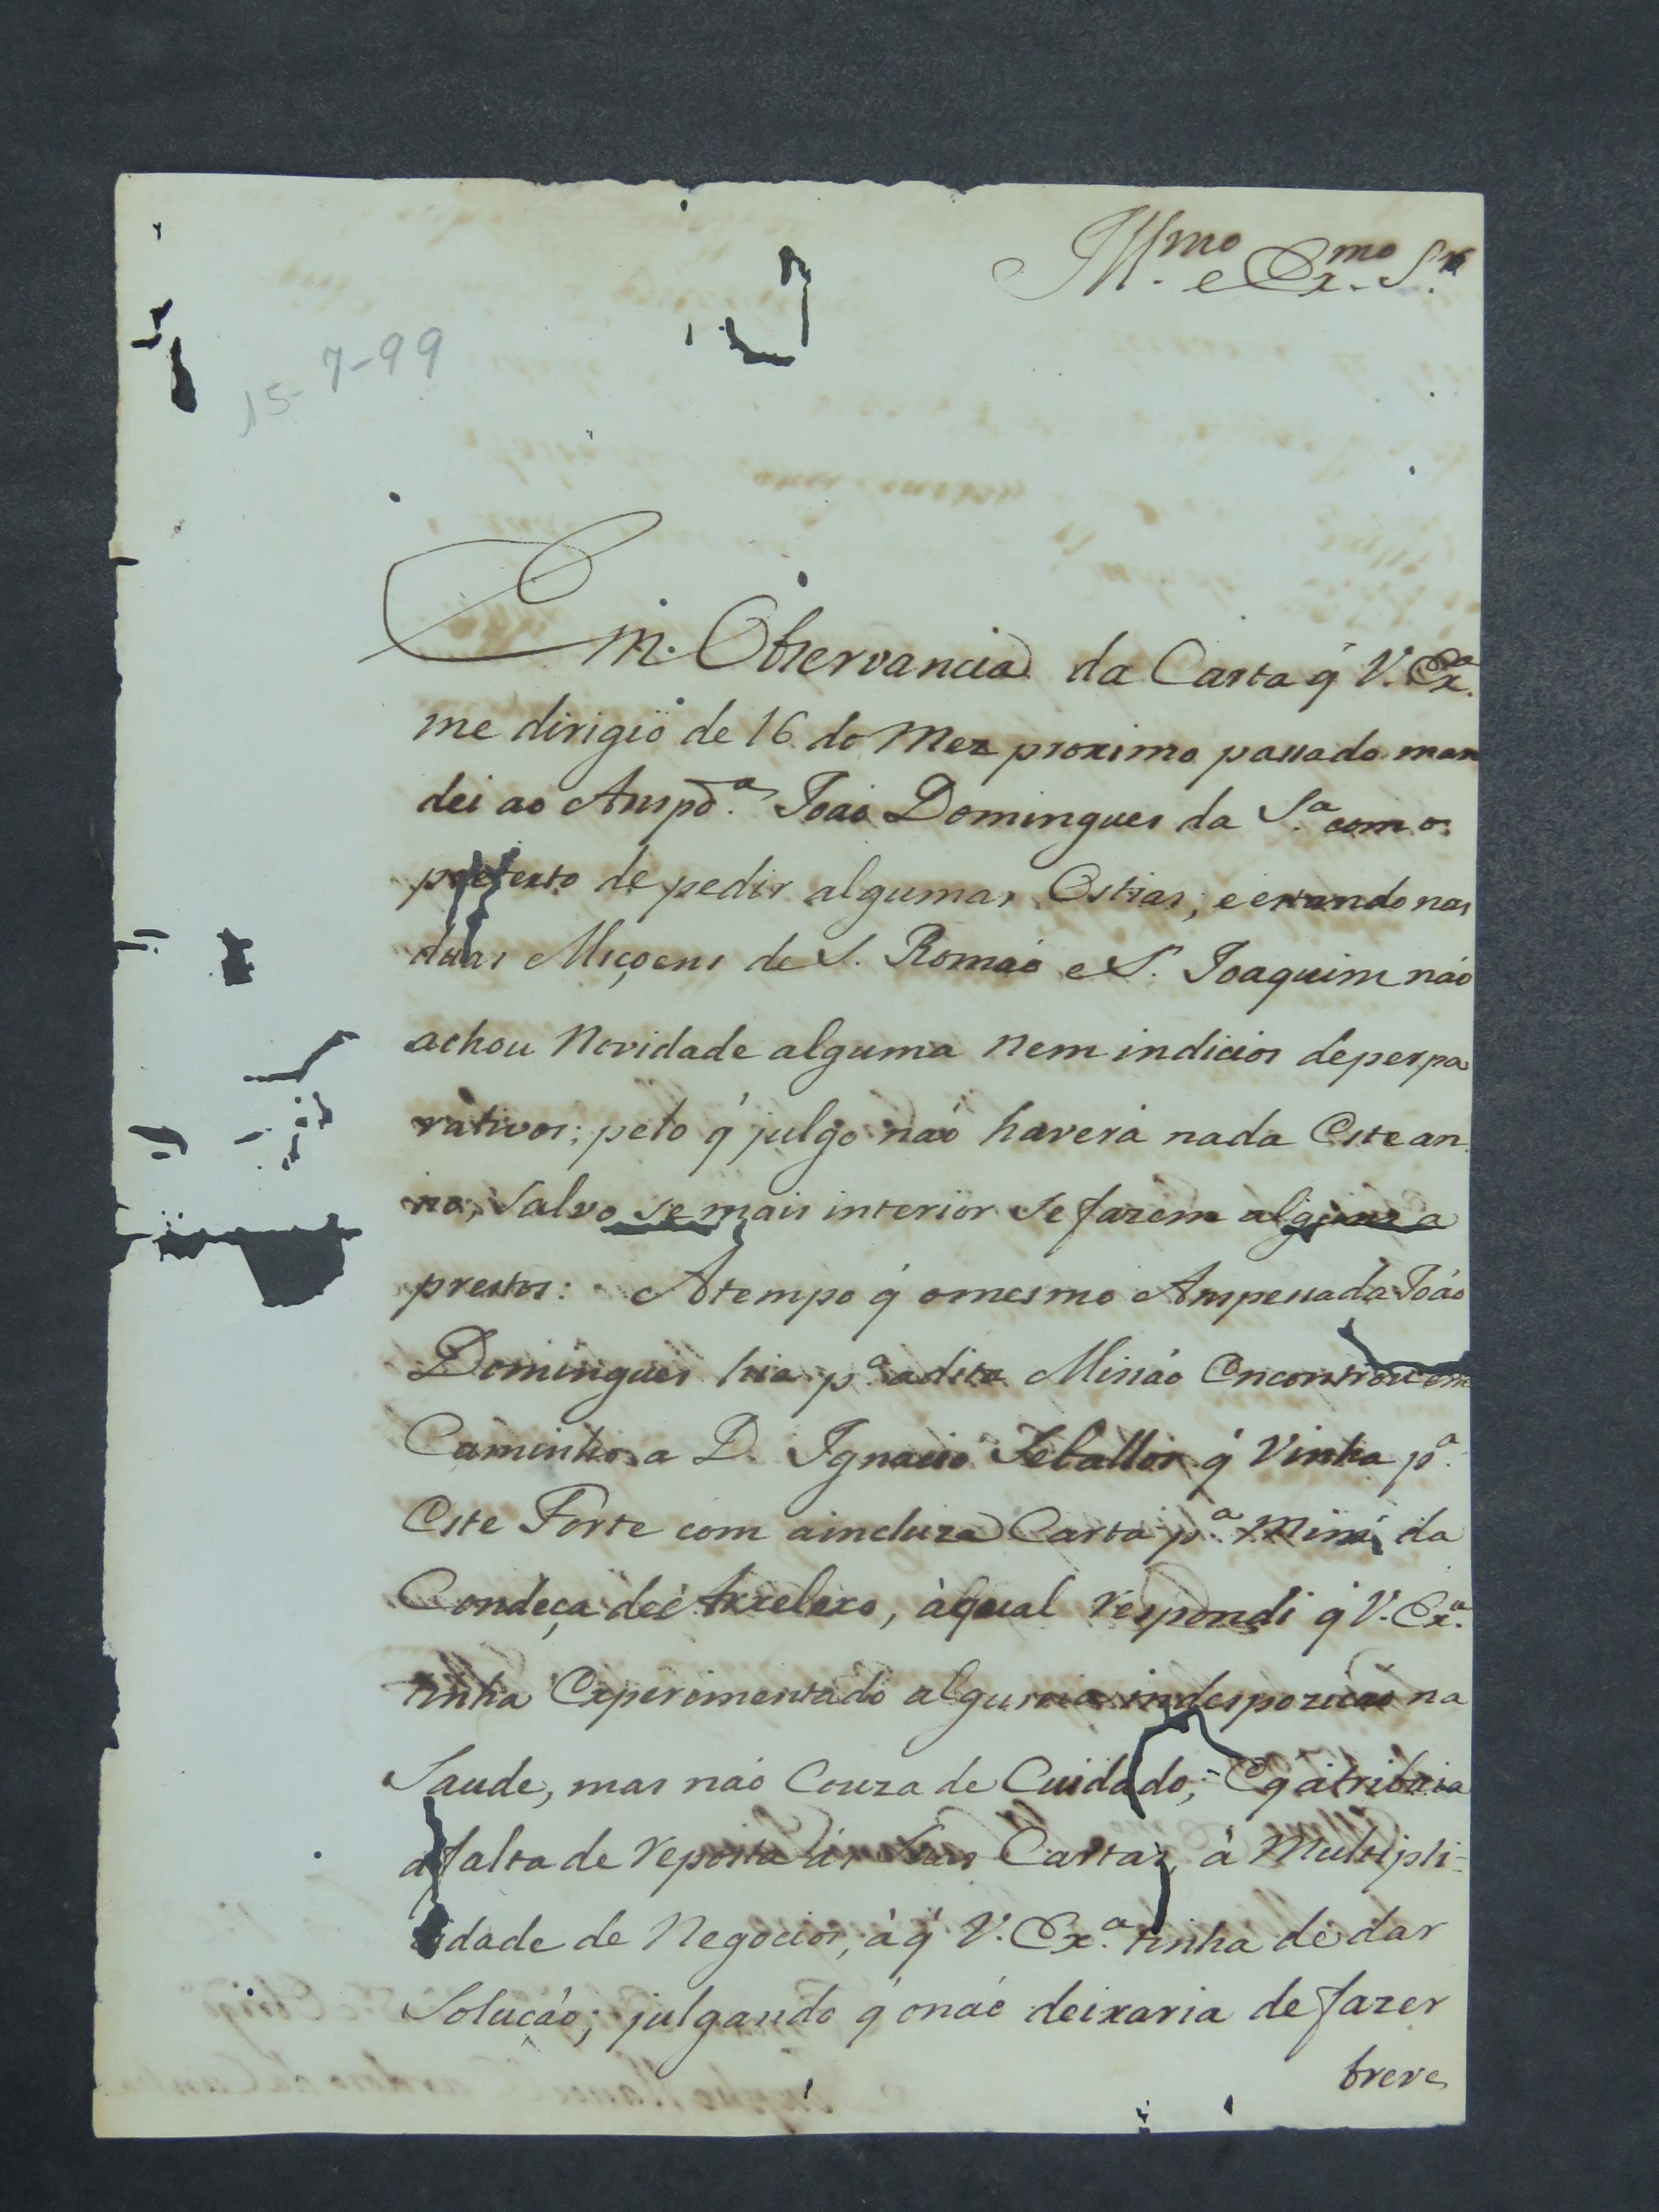 Ill.mo e Ex.mo S.r
15-7-99
Em Observancia da Carta q̃ V. Ex.a
me dirigio de 16 do Mez proximo passado man
dei ao Anspd.a Joaõ Domingues da S.a com o
pretexto de pedir algumas Ostias; e estando nas
duas Miçoens de S. Romaõ e S. Joaquim naõ
achou Novidade alguma nem indicios de perpa
rativos; pelo q̃ julgo naõ haverá nada Este an
no, Salvo se mais interior se fazem alguns a
prestos: A tempo q̃ o mesmo Anspessada Joáo
Domingues hia p.a a dita Missáo Encontrou em
Caminho a D. Ignacio Seballos q̃ Vinha p.a
Este Forte com a incluza Carta p.a mim, da
Condeça de Arzelexo, á qual respondi q̃ V. Ex.a
tinha Experimentado alguma indespozicaõ na
Saude, mas náo Couza de Cuidado; E q̃ atribuia
a falta de reposta ás suas Cartas, á Multipli-
cidade de Negocios, á q̃ V. Ex.a tinha de dar
Solução; julgando q̃ o náo deixaria de fazer
breve